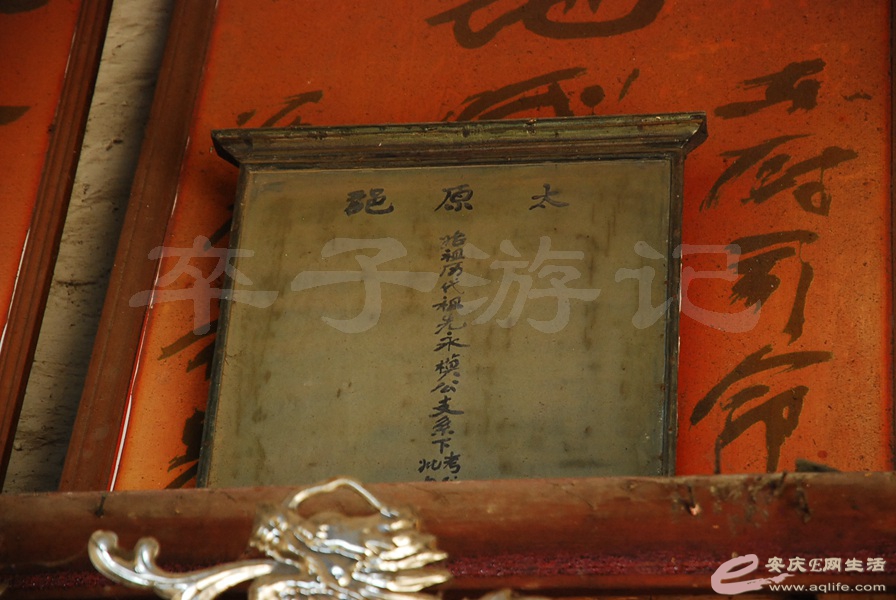 太原郡
始祖历代祖先永模公支系下考
妣
东厨司命
卒子游记
安庆E网生活
www.aqlife.com